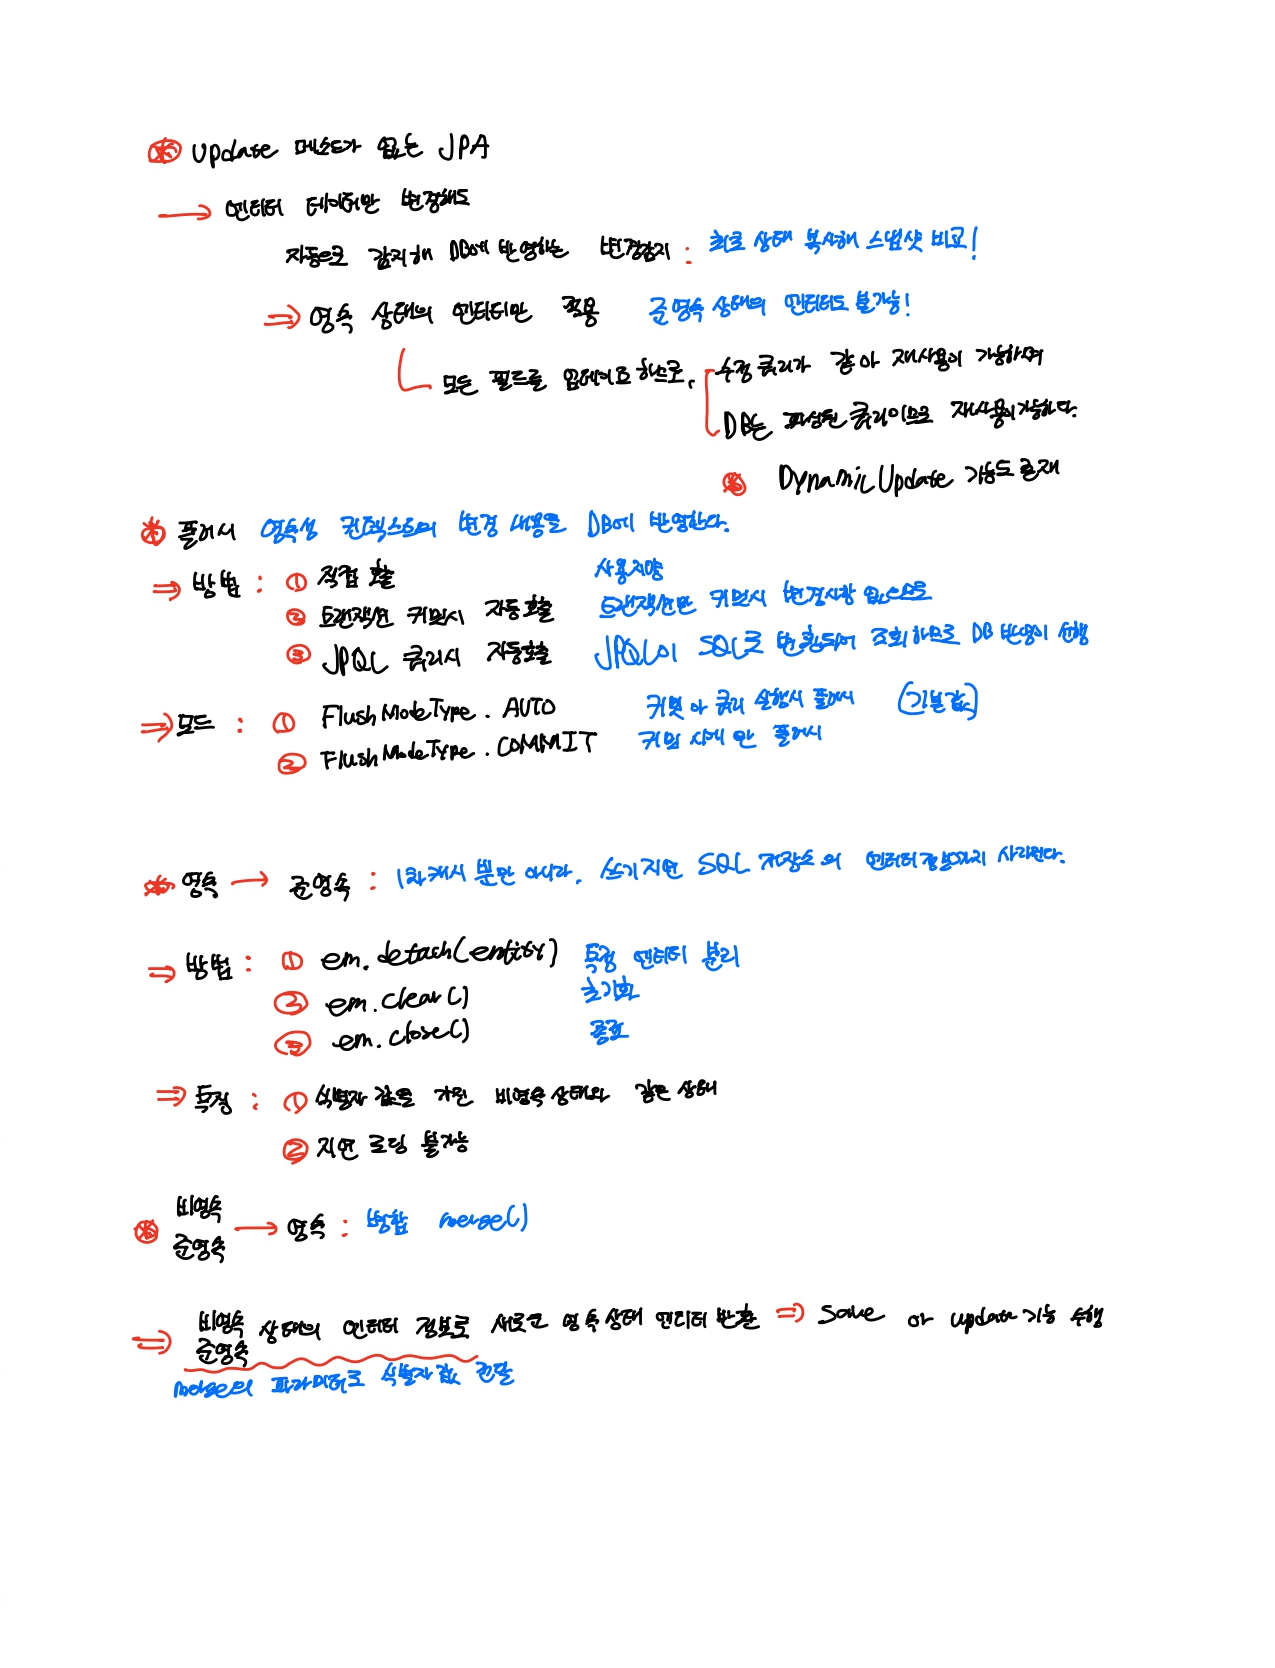 ※ Update 메소드가 없는 JPA
→ 엔티티 데이터만 변경해도
자동으로 감지해 DB에 반영하는 변경감지 : 최초 상태 복사해 스냅샷 비교!
⇒ 영속 상태의 엔티티만 적용 준영속 상태의 엔티티도 불가능!
모든 필드를 업데이트하므로, 수정 쿼리가 같아 재사용이 가능하며
DB는 파싱된 쿼리이므로 재사용이 가능하다.
※ DynamicUpdate 기능도 존재
※ 플러시 영속성 컨텍스트의 변경 내용을 DB에 반영한다.
⇒ 방법 : ① 직접 호출 사용지양
② 트랜잭션 커밋시 자동호출 트랜잭션만 커밋시 변경사항 없으므로
③ JPQL 쿼리시 자동호출 JPQL이 SQL로 변환되어 조회하므로 DB 반영이 선행
⇒ 모드 : ① FlushModeType.AUTO 커밋 or 쿼리 실행시 플러시 (기본값)
② FlushModeType.COMMIT 커밋 시에만 플러시
※ 영속 → 준영속 : 1차캐시 뿐만 아니라, 쓰기지연 SQL 저장소의 엔티티정보까지 사라진다.
⇒ 방법 : ① em.detach(entity) 특정 엔티티 분리
② em.clear() 초기화
③ em.close() 종료
⇒ 특징 : ① 식별자 값을 가진 비영속 상태와 같은 상태
② 지연 로딩 불가능
※ 비영속
준영속 → 영속 : 병합 merge()
⇒ 비영속
준영속 상태의 엔티티 정보로 새로운 영속상태 엔티티 반환 ⇒ Save or update 기능 수행
merge의 파라미터로 식별자 값 전달